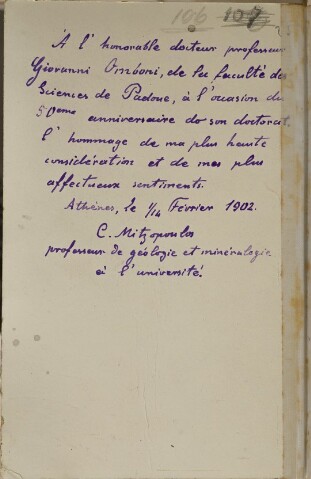 106 107
À l'honorable docteur professeur
Giovanni Omboni, de la faculté des
Sciences de Padoue, à l'occasion du
50ème anniversaire de son doctorat
l'hommage de ma plus haute
considération et de mes plus
affectueux sentiments.
Athènes, le 1/14 Février 1902.
C. Mitzopoulos
professeur de géologie et minéralogie
à l'université.